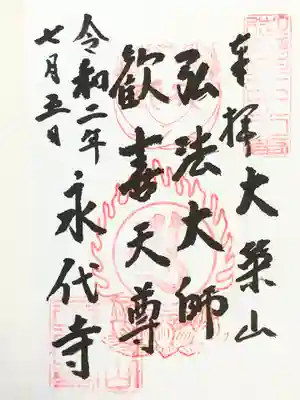 奉拝 大栄山
弘法大師
歓喜天尊
永代寺
令和二年
七月五日